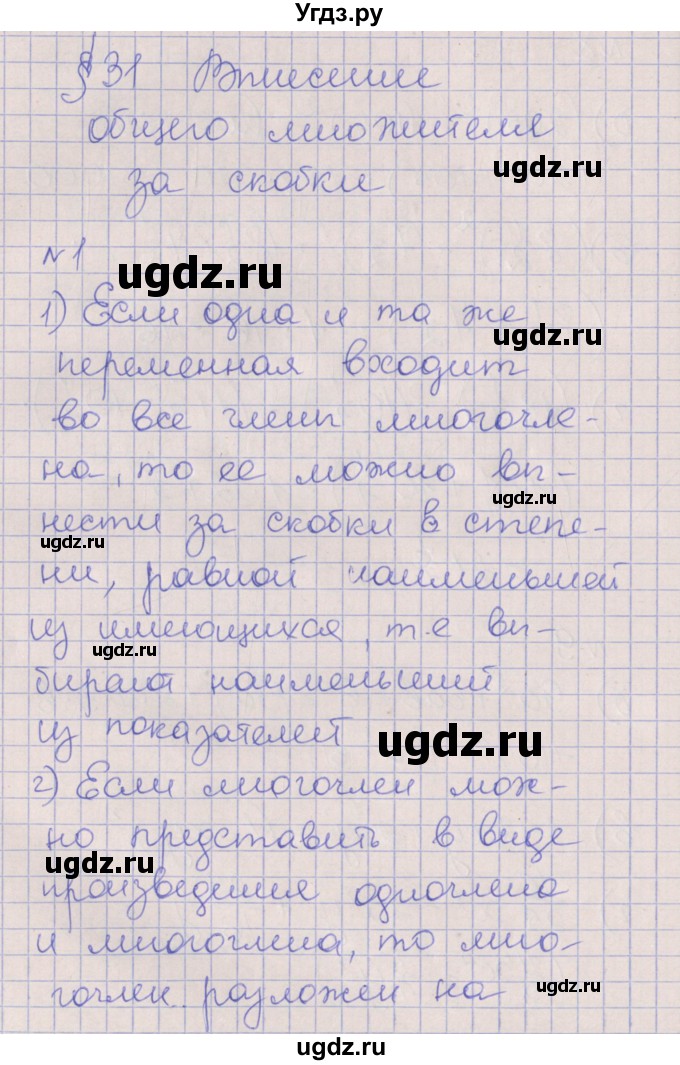 Угдз.ру
§ 31 Вынесение
общего множителя
ugdz.ru
за скобки
№ 1
ugdz.ru
1) Если одна и та же
переменная входит
во все члены многочле-
на, то ее можно вы-
ugdz.ru
нести за скобки в степе-
ugdz.ru
ни, равной наименьшей
из имеющихся, т.е вы-
ugdz.ru
бирают наименьший
из показателей
ugdz.ru
2) Если многочлен мож-
но представить в виде
ugdz.ru
произведения одночлена
и многочлена, то мно-
гочлен разложен на
ugdz.ru
ugdz.ru